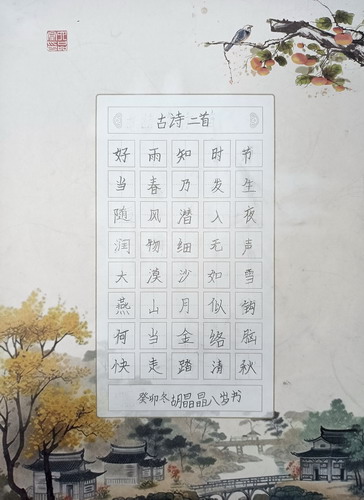 古诗二首
好雨知时节
当春乃发生
随风潜入夜
润物细无声
大漠沙如雪
燕山月似钩
何当金络脑
快走踏清秋
癸卯冬胡晶晶八岁书